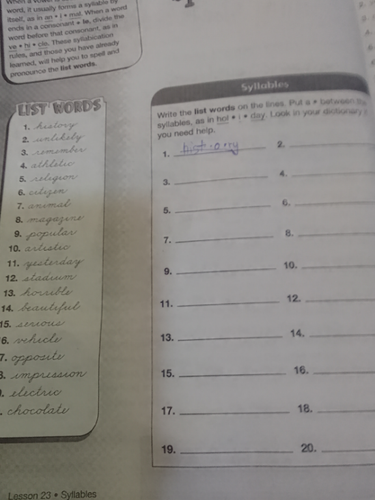 word, it usually forms a syllable by
itself, as in an • i • mal. When a word
ends in a consonant + le, divide the
word before that consonant, as in
ve • hi • cle. These syllabication
rules, and those you have already
learned, will help you to spell and
pronounce the list words.
LIST WORDS
1. history
2. unlikely
3. remember
4. athletic
5. religion
6. citizen
7. animal
8. magazine
9. popular
10. artistic
11. yesterday
12. stadium
13. horrible
14. beautiful
15. serious
6. vehicle
7. opposite
8. impression
. electric
. chocolate
Lesson 23 • Syllables
Syllables
Write the list words on the lines. Put a • between the
syllables, as in hol • i • day. Look in your dictionary if
you need help.
1.
2.
3.
4.
5.
6.
7.
8.
9.
10.
11.
12.
13.
14.
15.
16.
17.
18.
19.
20.